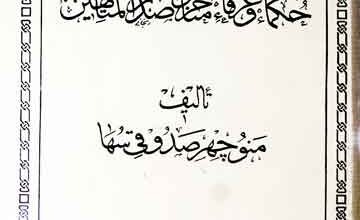 حُکَماء وَ عُرَفاءِ متأخّر از صَدرُ المُتألِّهین
تألیف
مَنوچِهر صَدوقی سُها